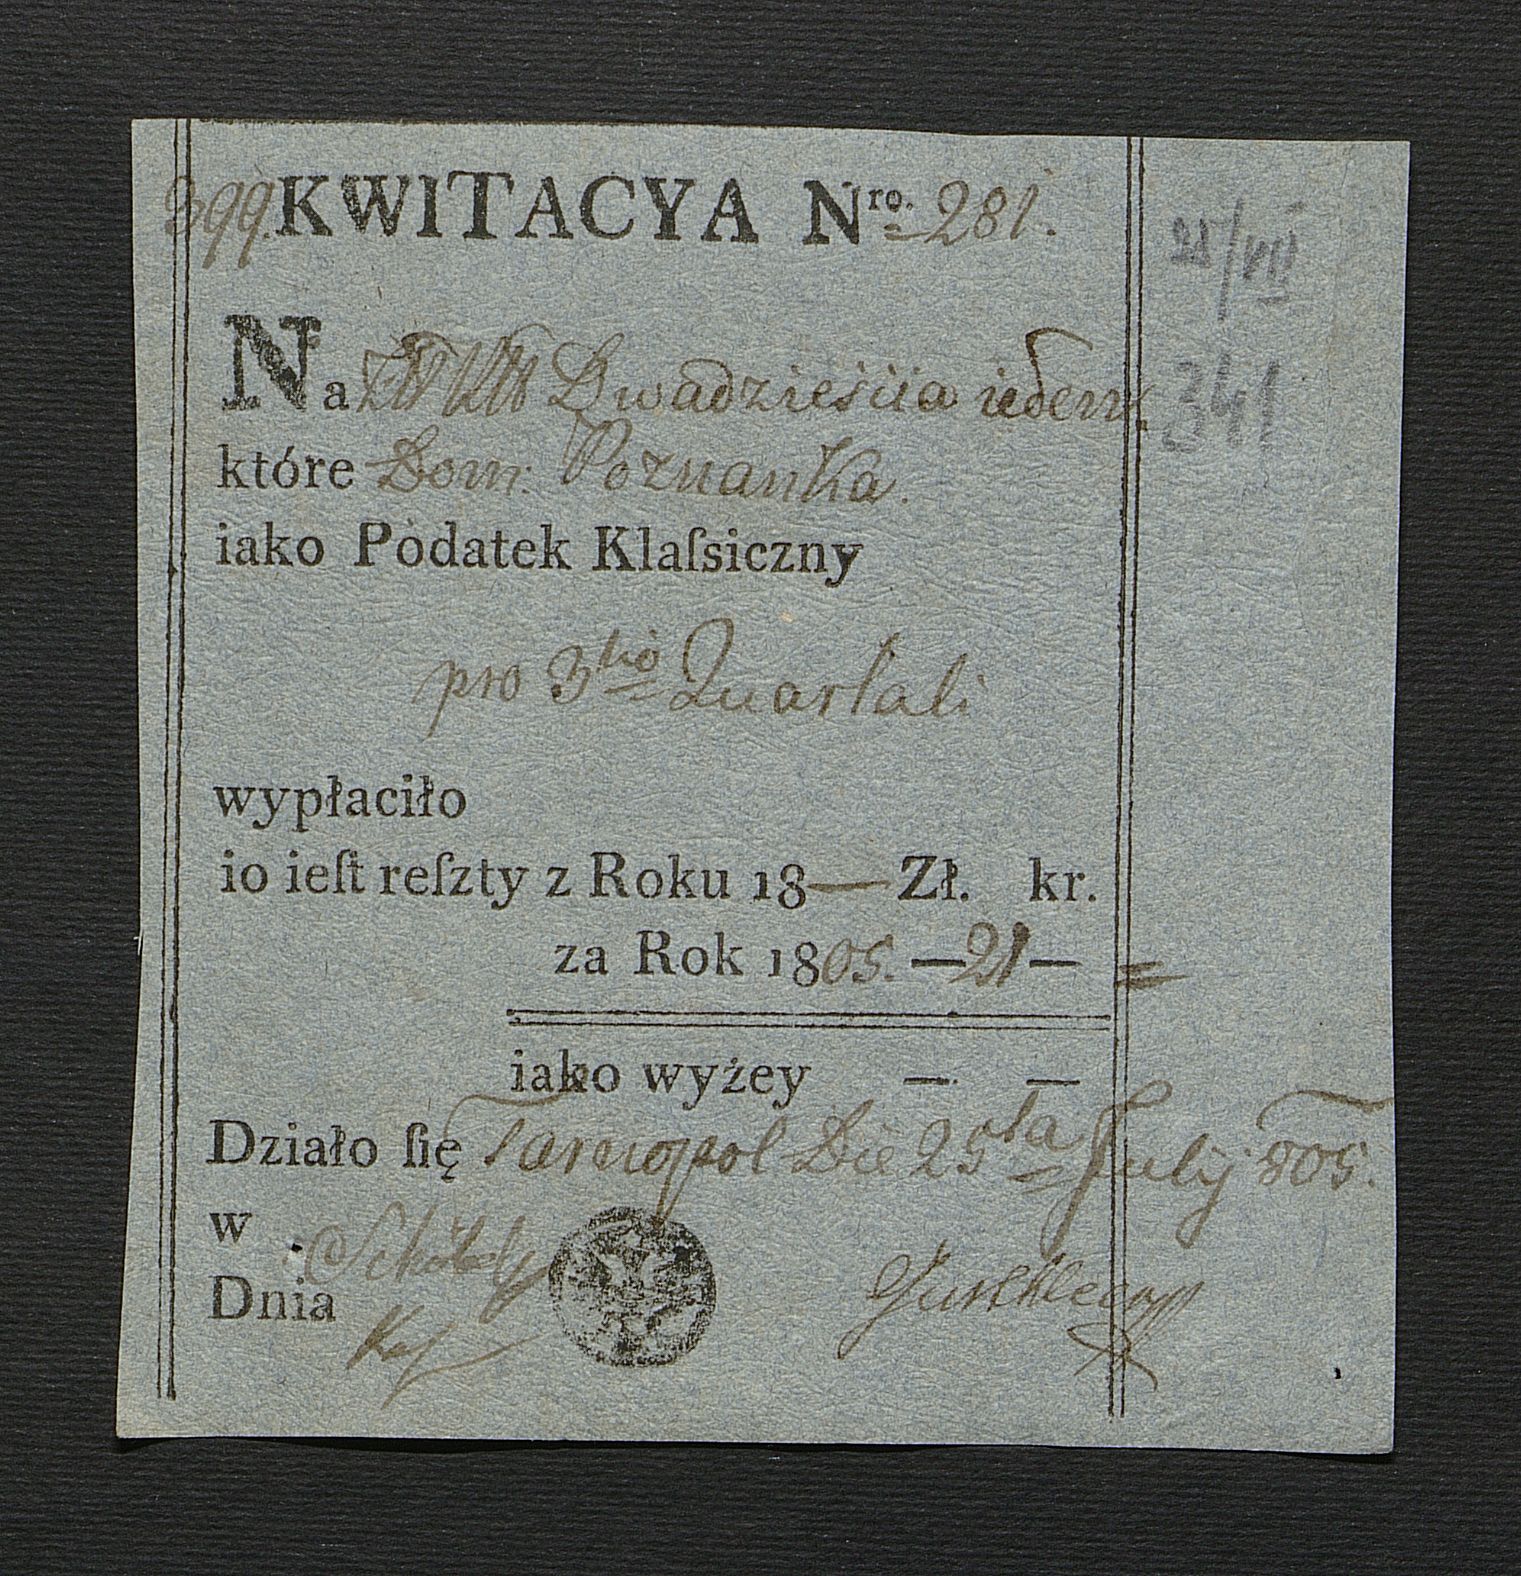 399. KWITACYA Nro. 281.
25/VII
Na Dwadzieścia ieden
341
które Dom. Poznanka.
iako Podatek Klaſsiczny
pro 3tio Quartali
wypłaciło
io ieſt reſzty z Roku 18— Zł. kr.
za Rok 1805. — 21 — =
iako wyżey — —
Działo ſię Tarnopol Die 25ta July 805.
w
Dnia